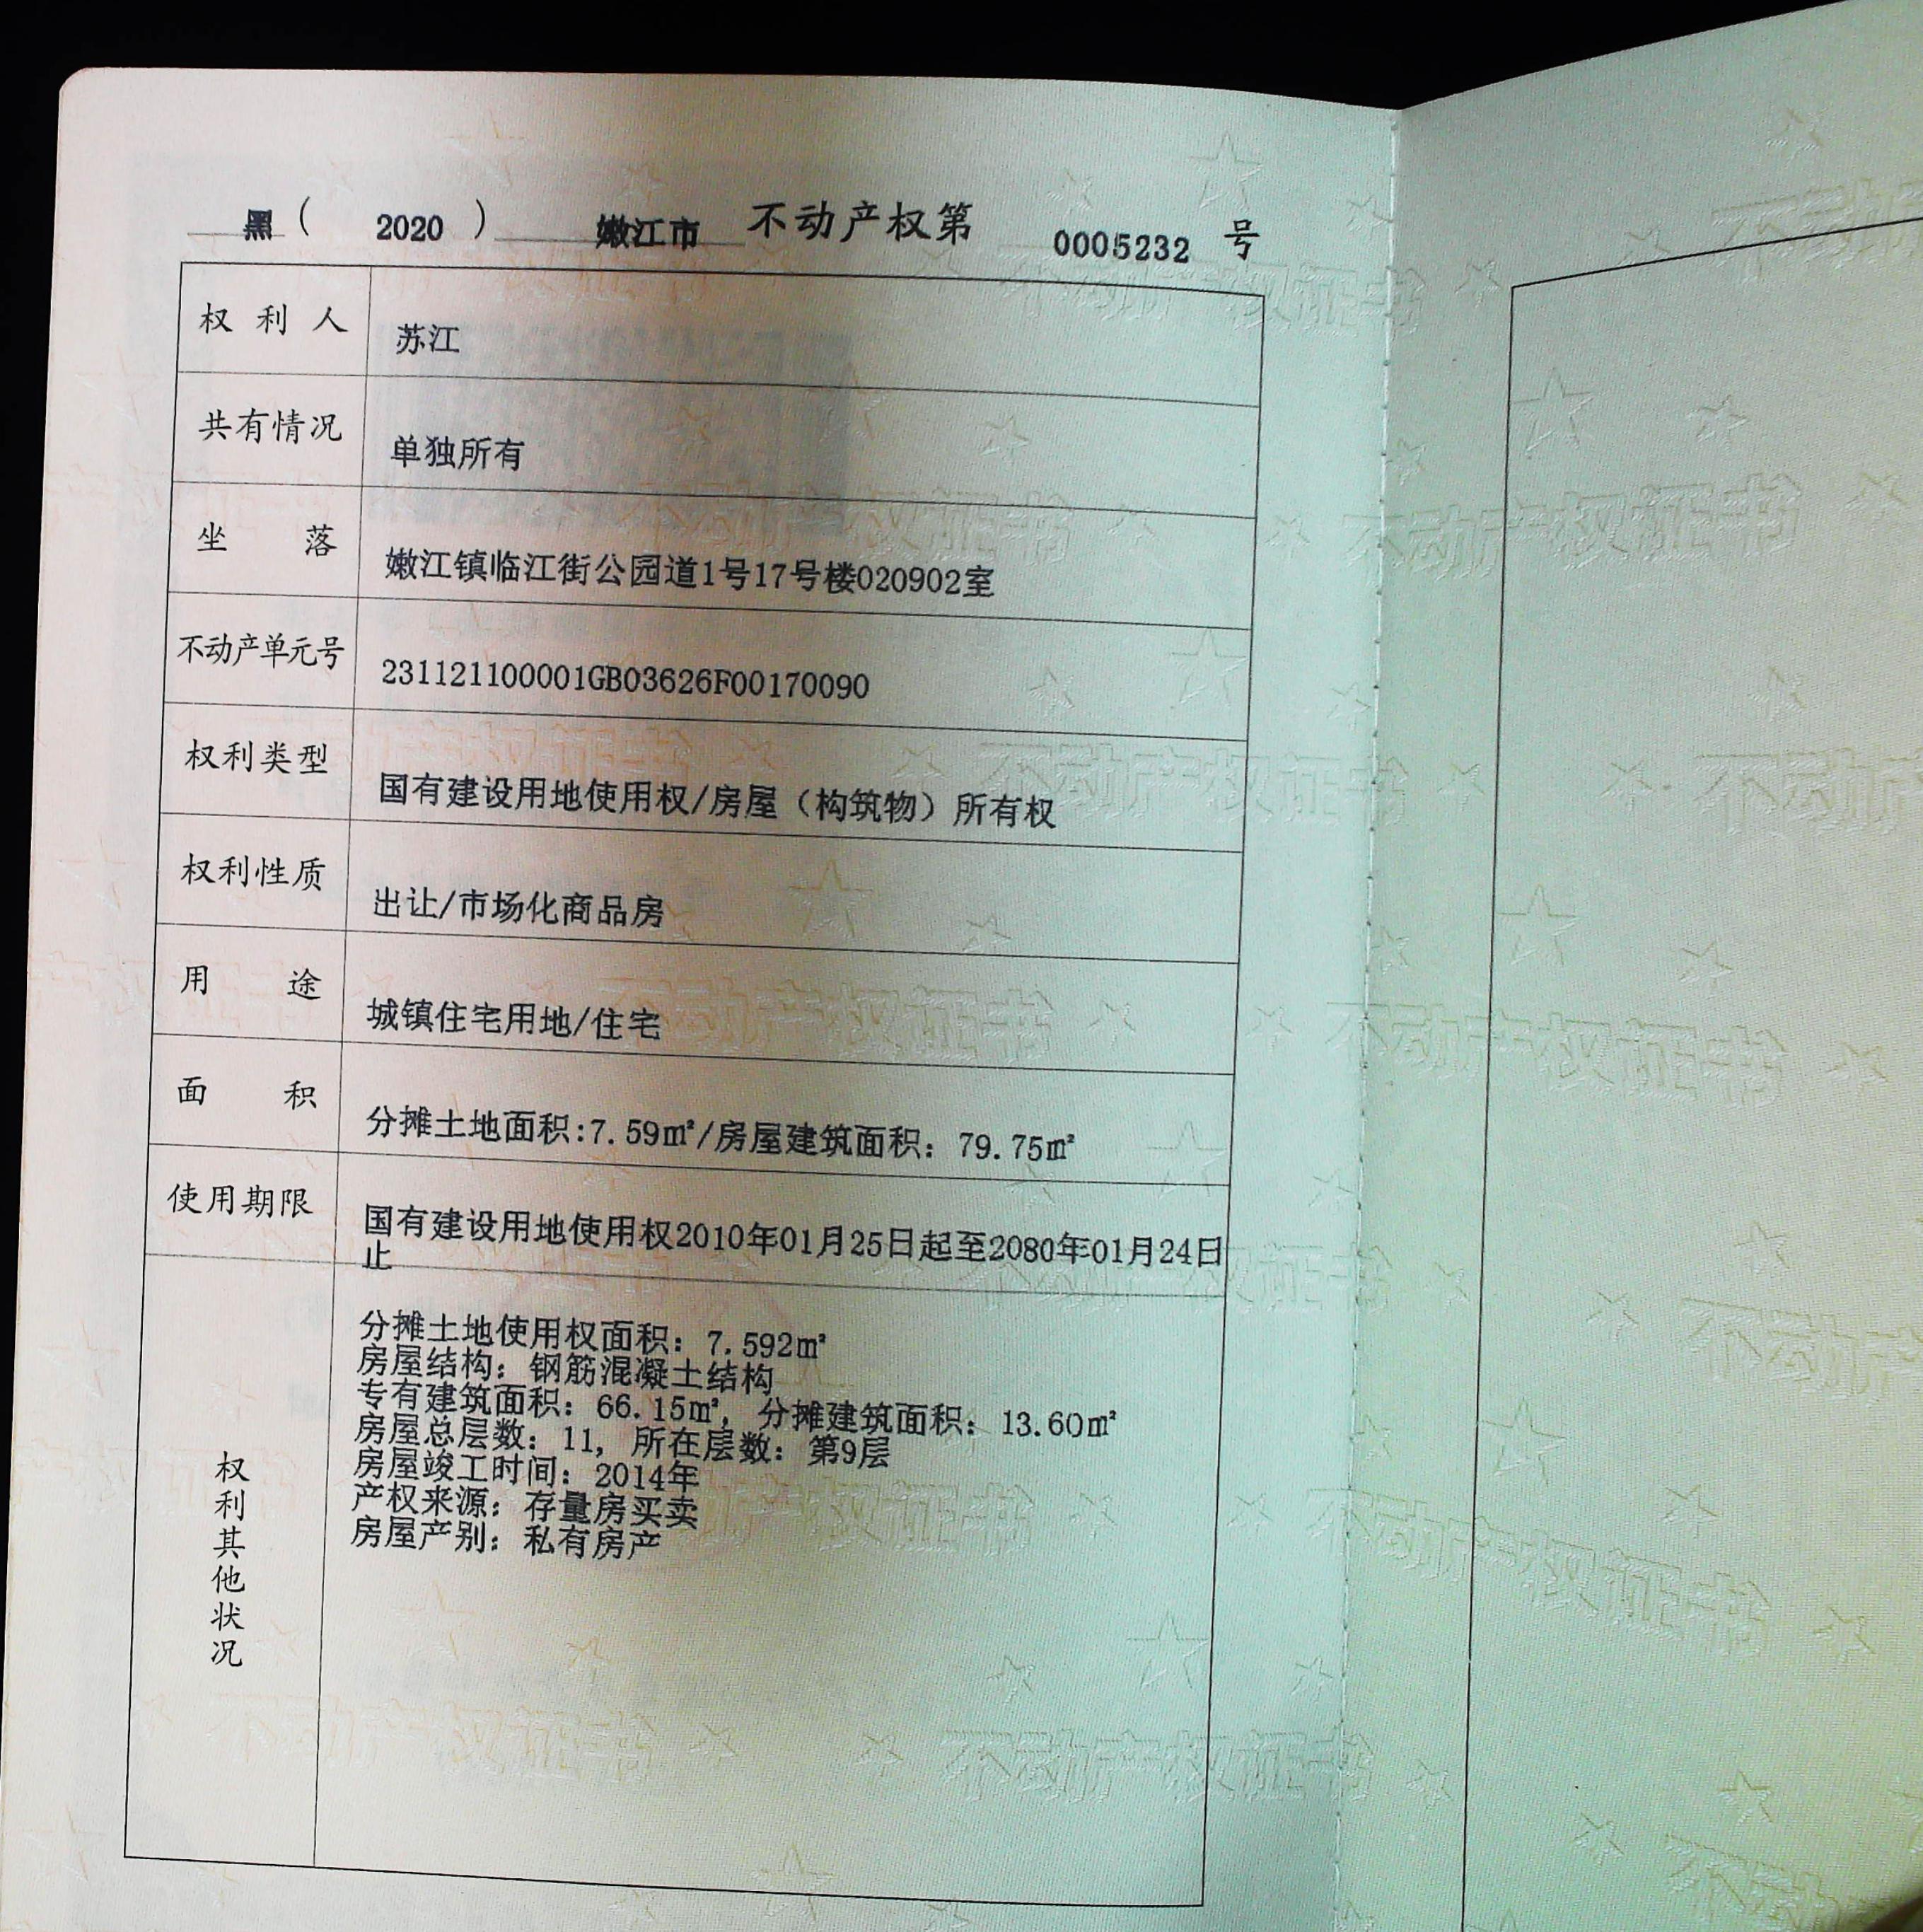 黑( 2020 ) 嫩江市 不动产权第 0005232 号
权利人 苏江
共有情况 单独所有
坐落 嫩江镇临江街公园道1号17号楼020902室
不动产单元号 231121100001GB03626F00170090
权利类型 国有建设用地使用权/房屋（构筑物）所有权
权利性质 出让/市场化商品房
用途 城镇住宅用地/住宅
面积 分摊土地面积:7.59㎡/房屋建筑面积：79.75㎡
使用期限 国有建设用地使用权2010年01月25日起至2080年01月24日
止
权利其他状况
分摊土地使用权面积：7.592㎡
房屋结构：钢筋混凝土结构
专有建筑面积：66.15㎡，分摊建筑面积：13.60㎡
房屋总层数：11，所在层数：第9层
房屋竣工时间：2014年
产权来源：存量房买卖
房屋产别：私有房产